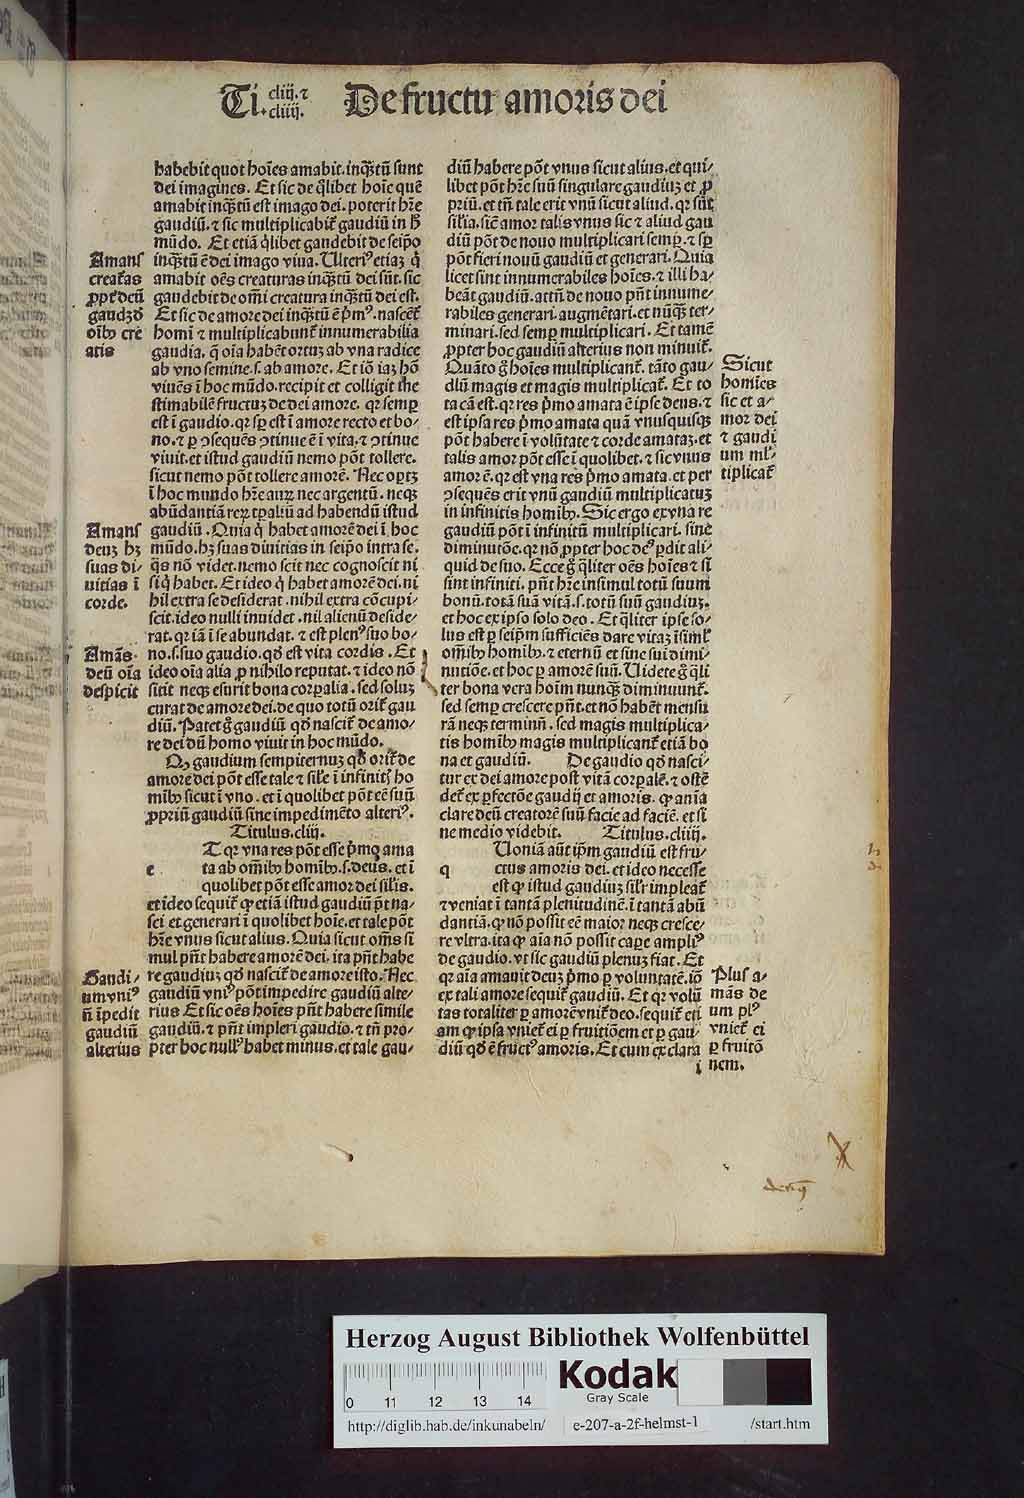 Ti. cliij. ⁊ cliiij. De fructu amoris dei
habebit quot hoīes amabit. inq̄ꝫtū sunt
dei imagines. Et sic de q̄libet hoīe quē
amabit inq̄ꝫtū est imago dei. poterit hr̄e
gaudiū. ⁊ sic multiplicabit᷑ gaudiū in h̄
mūdo. Et etiā q̄libet gaudebit de seip̄o
inq̄ꝫtū ē dei imago viua. Ulteriꝰ etiaꝫ q̇
amabit oēs creaturas inq̄ꝫtū dei sūt. sic
gaudebit de om̄i creatura inq̄ꝫtū dei est.
Et sic de amore dei inq̄ꝫtū ē p̄mꝰ. nascēt᷑
homī ⁊ multiplicabunt᷑ innumerabilia
gaudia. q̄ oīa habēt ortuꝫ ab vna radice
ab vno semine. s. ab amore. Et iō iaꝫ hō
viuēs ī hoc mūdo. recipit et colligit ine
stimabilē fructuꝫ de dei amore. qꝛ semꝑ
est ī gaudio. qꝛ sꝑ est ī amore recto et bo/
no. ⁊ ꝑ ꝯsequēs ꝯtinue ē ī vita. ⁊ ꝯtinue
viuit. et istud gaudiū nemo pōt tollere.
sicut nemo pōt tollere amorē. Nec oꝑtꝫ
ī hoc mundo hr̄e auꝝ nec argentū. neqꝫ
abūdantiā reꝝ tꝑaliū ad habendū istud
gaudiū. Quia q̇ habet amorē dei ī hoc
mūdo. hꝫ suas diuitias in seip̄o intra se.
q̄s nō videt. nemo scit nec cognoscit ni
si q̇ habet. Et ideo q̇ habet amorē dei. ni
hil extra se desiderat. nihil extra cōcupi/
scit. ideo nulli inuidet. nil alienū deside/
rat. qꝛ iā ī se abundat. ⁊ est plenꝰ suo bo/
no. s. suo gaudio. qd̄ est vita cordis. Et
ideo oīa alia ꝓ nihilo reputat. ⁊ ideo nō
sitit neqꝫ esurit bona corꝑalia. sed soluꝫ
curat de amore dei. de quo totū orit᷑ gau
diū. Patet g̊ gaudiū qd̄ nascit᷑ de amo/
re dei dū homo viuit in hoc mūdo.
Qꝙ gaudium sempiternuꝫ qd̄ orit᷑ de
amore dei pōt esse tale ⁊ sil̄e ī infinitꝭ ho
mībꝰ sicut ī vno. et ī quolibet pōt eē suū
ꝓpriū gaudiū sine impedimēto alteriꝰ.
Titulus. cliij.
e T qꝛ vna res pōt esse p̄mo ama
ta ab om̄ibꝰ hominibꝰ. s. deus. et ī
quolibet pōt esse amor dei sil̄is.
et ideo sequit᷑ ꝙ etiā istud gaudiū p̄t na/
sci et generari ī quolibet hoīe. et tale pōt
hr̄e vnus sicut alius. Quia sicut om̄s si
mul pn̄t habere amorē dei. ita pn̄t habe
re gaudiuꝫ qd̄ nascit᷑ de amore isto. Nec
gaudiū vniꝰ pōt impedire gaudiū alte/
rius Et sic oēs hoīes pn̄t habere simile
gaudiū. ⁊ pn̄t impleri gaudio. ⁊ tn̄ pro/
pter hoc nullꝰ habet minus. et tale gau/
Amans
creat᷑as
ꝓpt᷑ deū
gaudꝫ d̄
oībꝰ cre
atis
Amans
deuꝫ hꝫ
suas di/
uitias ī
corde.
Amās
deū oīa
despicit
Gaudi/
um vniꝰ
n̄ īpedit
gaudiū
alterius
diū habere pōt vnus sicut alius. et qui/
libet pōt hr̄e suū singulare gaudiuꝫ et ꝓ
priū. et tn̄ tale erit vnū sicut aliud. qꝛ sūt
sil̄ia. sic̄ amor talis vnus sic ⁊ aliud gau
diū pōt de nouo multiplicari semꝑ. ⁊ sꝑ
pōt fieri nouū gaudiū et generari. Quia
licet sint innumerabiles hoīes. ⁊ illi ha/
beāt gaudiū. attn̄ de nouo pn̄t innume/
rabiles generari. augmētari. et nūqꝫ ter/
minari. sed semꝑ multiplicari. Et tamē
ꝓpter hoc gaudiū alterius non minuit᷑.
Quāto g̊ hoīes multiplicant᷑. tāto gau/
diū magis et magis multiplicat᷑. Et to
ta cā est. qꝛ res p̄mo amata ē ipse deus. ⁊
est ipsa res p̄mo amata quā vnusquisqꝫ
pōt habere ī volūtate ⁊ corde amataꝫ. et
talis amor pōt esse ī quolibet. ⁊ sic vnus
amor ē. qꝛ est vna res p̄mo amata. et per
ꝯsequēs erit vnū gaudiū multiplicatuꝫ
in infinitis homibꝰ. Sic ergo ex vna re
gaudiū pōt ī infinitū multiplicari. sine
diminutōe. qꝛ nō ꝓpter hoc deꝰ ꝑdit ali/
quid de suo. Ecce g̊ q̄liter oēs hoīes ⁊ si
sint infiniti. pn̄t hr̄e insimul totū suum
bonū. totā suā vitā. s. totū suū gaudiuꝫ.
et hoc ex ipso solo deo. Et q̄liter ipse so/
lus est ꝑ seip̄m sufficiēs dare vitaꝫ īsiml̄
om̄ibꝰ homībꝰ. ⁊ eternū et sine sui dimi/
nutiōe. et hoc ꝑ amorē suū. Uidete g̊ q̄li
ter bona vera hoīm nunqꝫ diminuunt᷑.
sed semꝑ crescere pn̄t. et nō habēt mensu
rā neqꝫ terminū. sed magis multiplica/
tis homībꝰ magis multiplicant᷑ etiā bo
na et gaudiū. De gaudio qd̄ nasci/
tur ex dei amore post vitā corꝑalē. ⁊ ostē
det᷑ ex ꝑfectōe gaudij et amoris. ꝙ anīa
clare deū creatorē suū facie ad faciē. et si
ne medio videbit. Titulus. cliiij.
q Uoniā aūt ip̄m gaudiū est fru/
ctus amoris dei. et ideo necesse
est ꝙ istud gaudiuꝫ sil̄r impleat᷑
⁊ veniat ī tantā plenitudinē. ī tantā abū
dantiā. ꝙ nō possit eē maior neqꝫ cresce/
re vltra. ita ꝙ aīa nō possit caꝑe ampliꝰ
de gaudio. vt sic gaudiū plenuꝫ fiat. Et
qꝛ aīa amauit deuꝫ p̄mo ꝑ voluntatē. iō
ex tali amore sequit᷑ gaudiū. Et qꝛ volū
tas totaliter ꝑ amorē vnit᷑ deo. sequit᷑ etī
am ꝙ ipsa vniet᷑ ei ꝑ fruitiōem et ꝑ gau/
diū qd̄ ē fructꝰ amoris. Et cum ex clara
i
Sicut
homīes
sic et a/
mor dei
⁊ gaudi
um ml̄/
tiplicat᷑
Plus a/
mās de
um plꝰ
vniet᷑ ei
ꝑ fruitō
nem.
Herzog August Bibliothek Wolfenbüttel
Kodak
Gray Scale
0 11 12 13 14
http://diglib.hab.de/inkunabeln/ e-207-a-2f-helmst-1 /start.htm